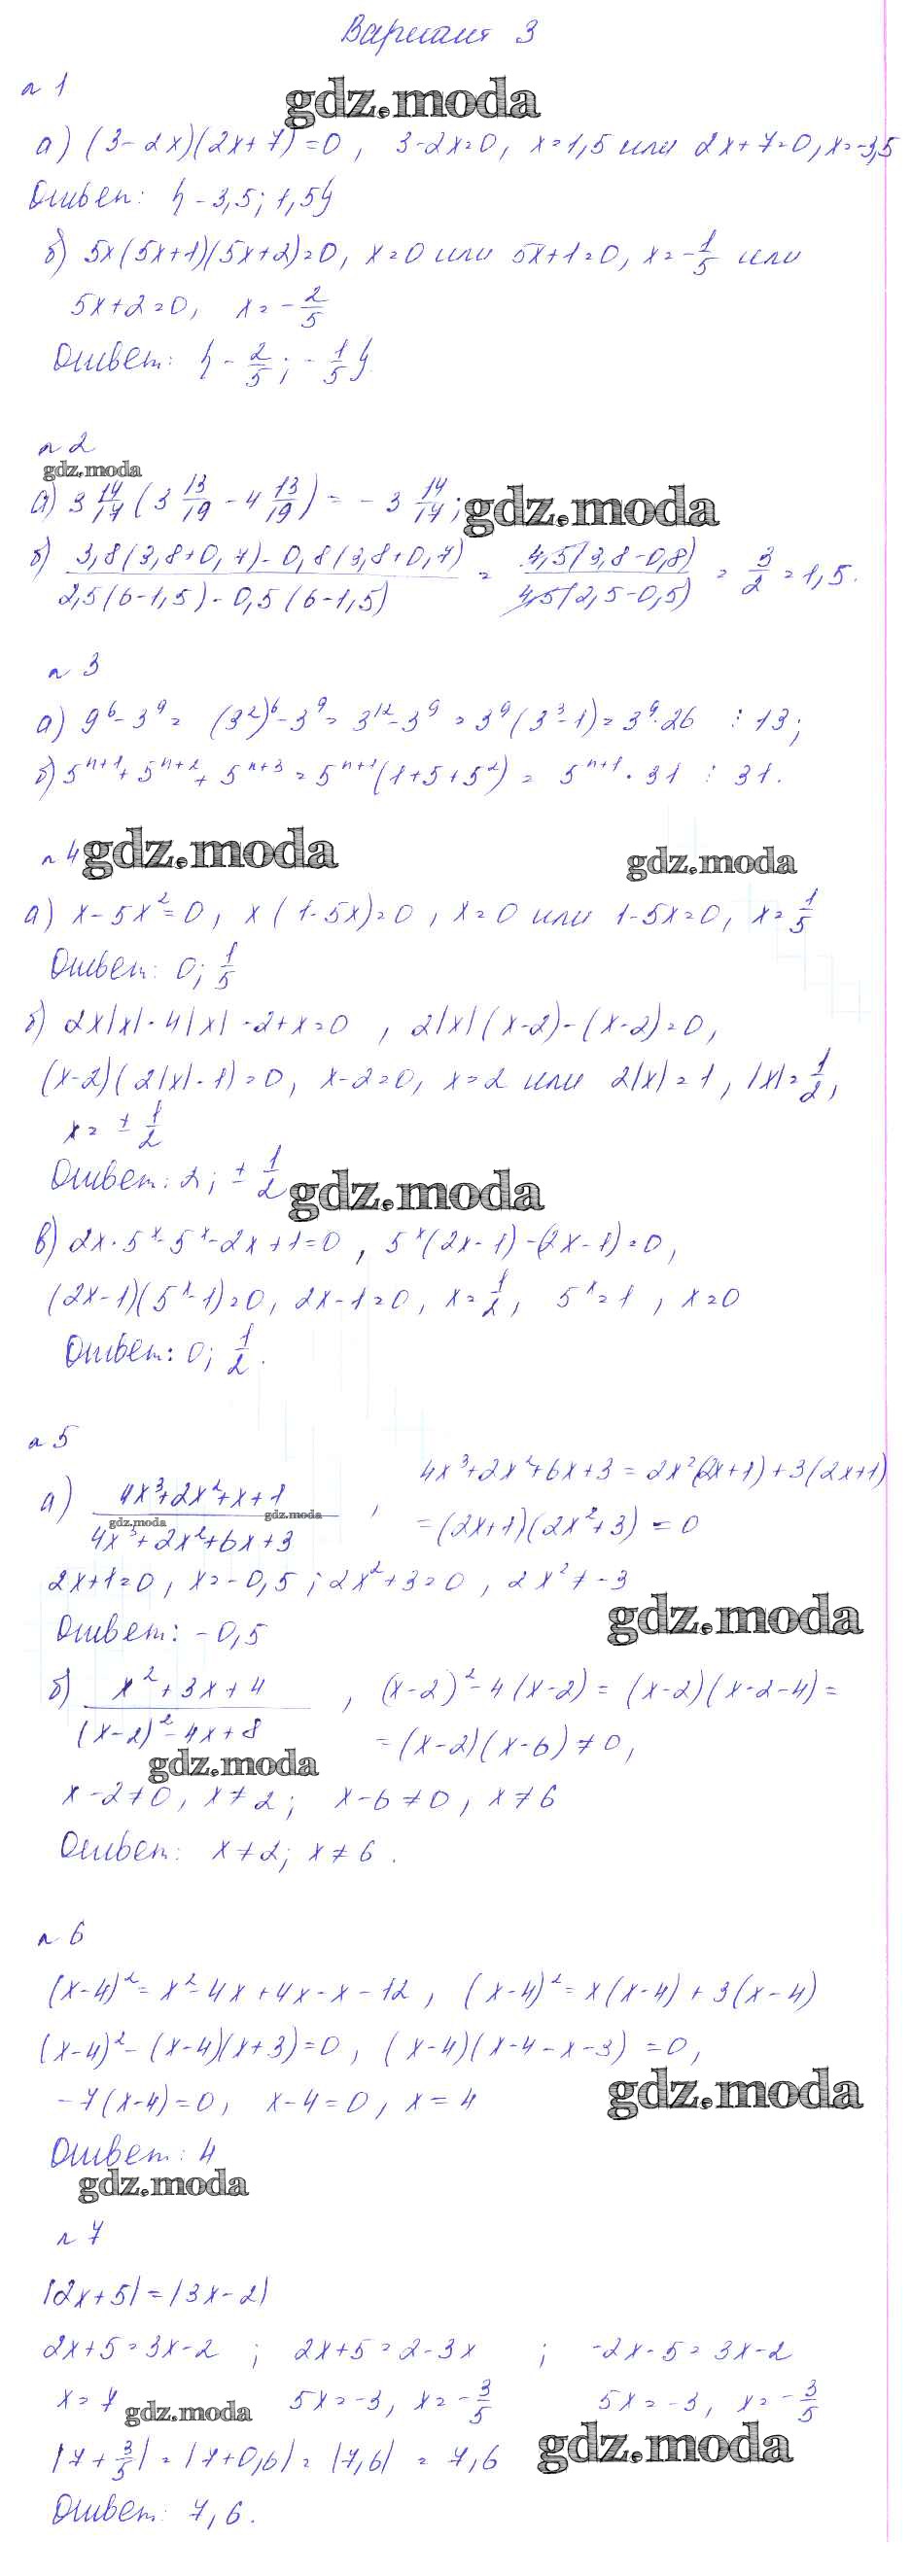 Вариант 3
n 1
gdz.moda
а) (3-2x)(2x+7)=0, 3-2x=0, x=1,5 или 2x+7=0, x=-3,5
Ответ: {-3,5; 1,5}
б) 5x(5x+1)(5x+2)=0, x=0 или 5x+1=0, x=-1/5 или
5x+2=0, x=-2/5
Ответ: {-2/5; -1/5}
n 2
gdz.moda
а) 3 14/17 (3 13/19 - 4 13/19) = -3 14/17;
gdz.moda
б) (3,8(3,8+0,7)-0,8(3,8+0,7))/(2,5(6-1,5)-0,5(6-1,5)) = (4,5(3,8-0,8))/(4,5(2,5-0,5)) = 3/2 = 1,5.
n 3
а) 9^6-3^9= (3^2)^6-3^9=3^12-3^9=3^9(3^3-1)=3^9·26 ⋮ 13;
б) 5^(n+1)+5^(n+2)+5^(n+3)=5^(n+1)(1+5+5^2)= 5^(n+1)·31 ⋮ 31.
n 4
gdz.moda
gdz.moda
а) x-5x²=0, x(1-5x)=0, x=0 или 1-5x=0, x=1/5
Ответ: 0; 1/5
б) 2x|x|-4|x|-2+x=0, 2|x|(x-2)-(x-2)=0,
(x-2)(2|x|-1)=0, x-2=0, x=2 или 2|x|=1, |x|=1/2,
x=±1/2
Ответ: 2; ±1/2
gdz.moda
в) 2x·5^x-5^x-2x+1=0, 5^x(2x-1)-(2x-1)=0,
(2x-1)(5^x-1)=0, 2x-1=0, x=1/2, 5^x=1, x=0
Ответ: 0; 1/2.
n 5
а) (4x³+2x²+x+1)/(4x³+2x²+6x+3), 4x³+2x²+6x+3=2x²(2x+1)+3(2x+1)
gdz.moda
gdz.moda
=(2x+1)(2x²+3)=0
2x+1=0, x=-0,5; 2x²+3=0, 2x²≠-3
gdz.moda
Ответ: -0,5
б) (x²+3x+4)/((x-2)²-4x+8), (x-2)²-4(x-2)=(x-2)(x-2-4)=
=(x-2)(x-6)≠0,
gdz.moda
x-2≠0, x≠2; x-6≠0, x≠6
Ответ: x≠2; x≠6.
n 6
(x-4)²=x²-4x+4x-x-12, (x-4)²=x(x-4)+3(x-4)
(x-4)²-(x-4)(x+3)=0, (x-4)(x-4-x-3)=0,
gdz.moda
-7(x-4)=0, x-4=0, x=4
Ответ: 4
gdz.moda
n 7
|2x+5|=|3x-2|
2x+5=3x-2; 2x+5=2-3x; -2x-5=3x-2
x=7 5x=-3, x=-3/5 5x=-3, x=-3/5
gdz.moda
gdz.moda
|7+3/5|=|7+0,6|=|7,6|=7,6
Ответ: 7,6.